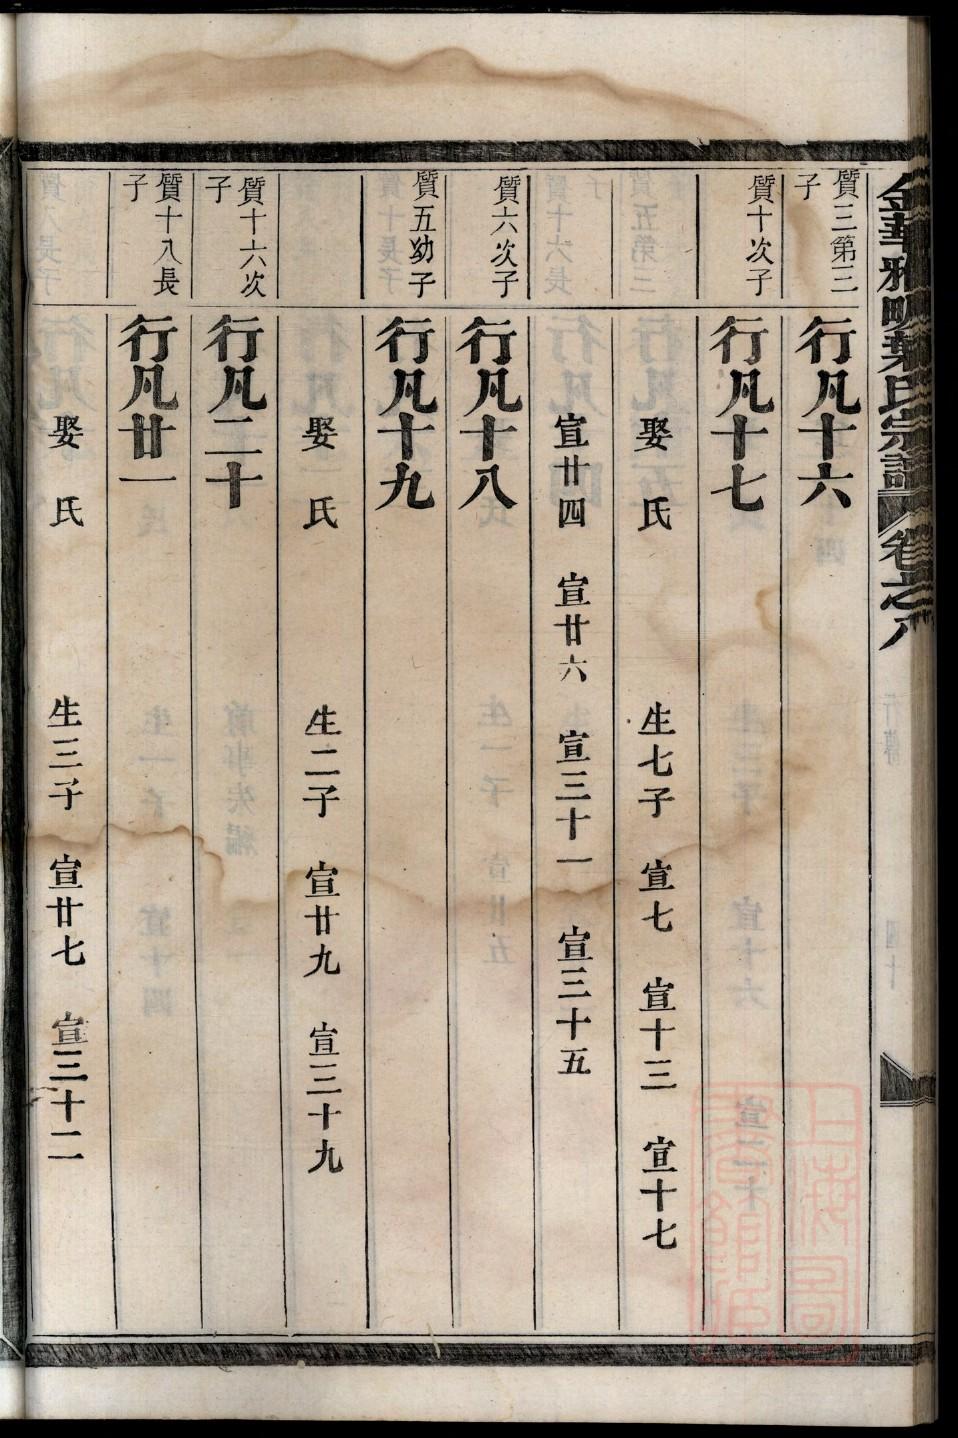 金華雅畈葉氏宗譜 卷之八
質三第三子
行凡十六
質十次子
行凡十七
娶 氏 生七子 宣七 宣十三 宣十七
宣廿四 宣廿六 宣三十一 宣三十五
質六次子
行凡十八
質五幼子
行凡十九
娶 氏 生二子 宣廿九 宣三十九
質十六次子
行凡二十
質十八長子
行凡廿一
娶 氏 生三子 宣廿七 宣三十二
上海圖書館藏